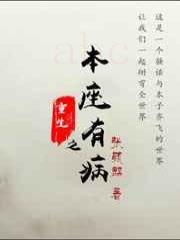 这是一个骚话与本子齐飞的世界
让我们一起掰弯全世界
重生
之
本座有病
著
abc